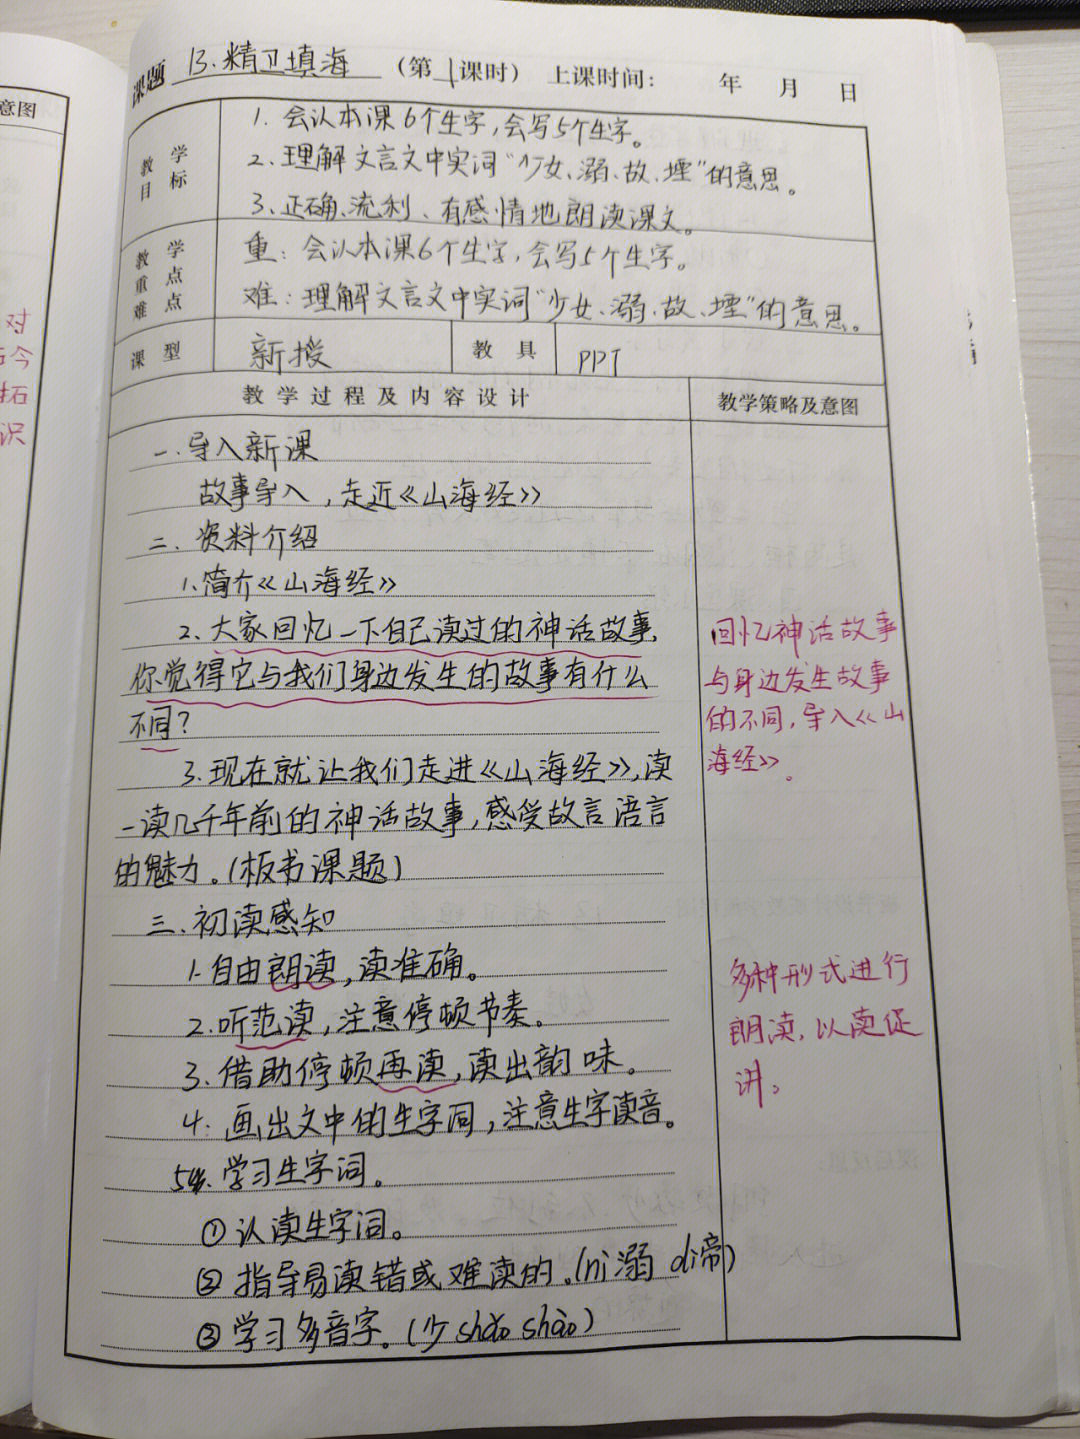 意图
对
今
石
识
课题 13.精卫填海 (第1课时) 上课时间: 年 月 日
教学目标
1. 会认本课6个生字,会写5个生字。
2.理解文言文中实词“少女、溺、故、堙”的意思。
3.正确、流利、有感情地朗读课文。
教学重点难点
重:会认本课6个生字,会写5个生字。
难:理解文言文中实词“少女、溺、故、堙”的意思。
课型 新授 教具 PPT
教学过程及内容设计 教学策略及意图
一.导入新课
故事导入,走近《山海经》
二.资料介绍
1.简介《山海经》
2.大家回忆一下自己读过的神话故事,
你觉得它与我们身边发生的故事有什么
不同?
回忆神话故事
与身边发生故事
的不同,导入《山
海经》。
3.现在就让我们走进《山海经》,读
一读几千年前的神话故事,感受故言语言
的魅力。(板书课题)
三.初读感知
1.自由朗读,读准确。
2.听范读,注意停顿节奏。
3.借助停顿再读,读出韵味。
多种形式进行
朗读,以读促
讲。
4.画出文中的生字词,注意生字读音。
5.学习生字词。
①认读生字词。
②指导易读错或难读的。(nì溺 dì帝)
③学习多音字。(少 shǎo shào)